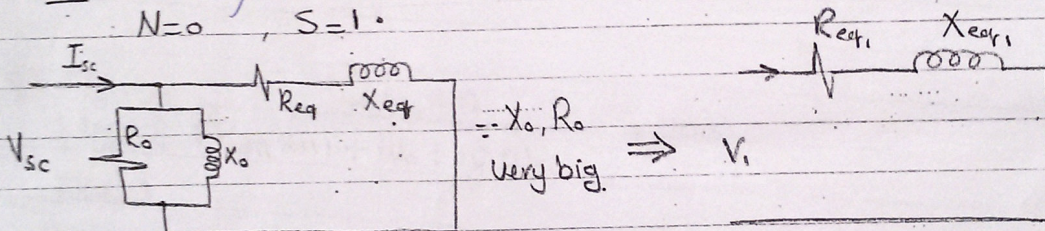 N=0 , S=1.
Isc
Req Xeq
Vsc
Ro Xo
∵ Xo, Ro
very big.
⇒
Req1 Xeq1
V1